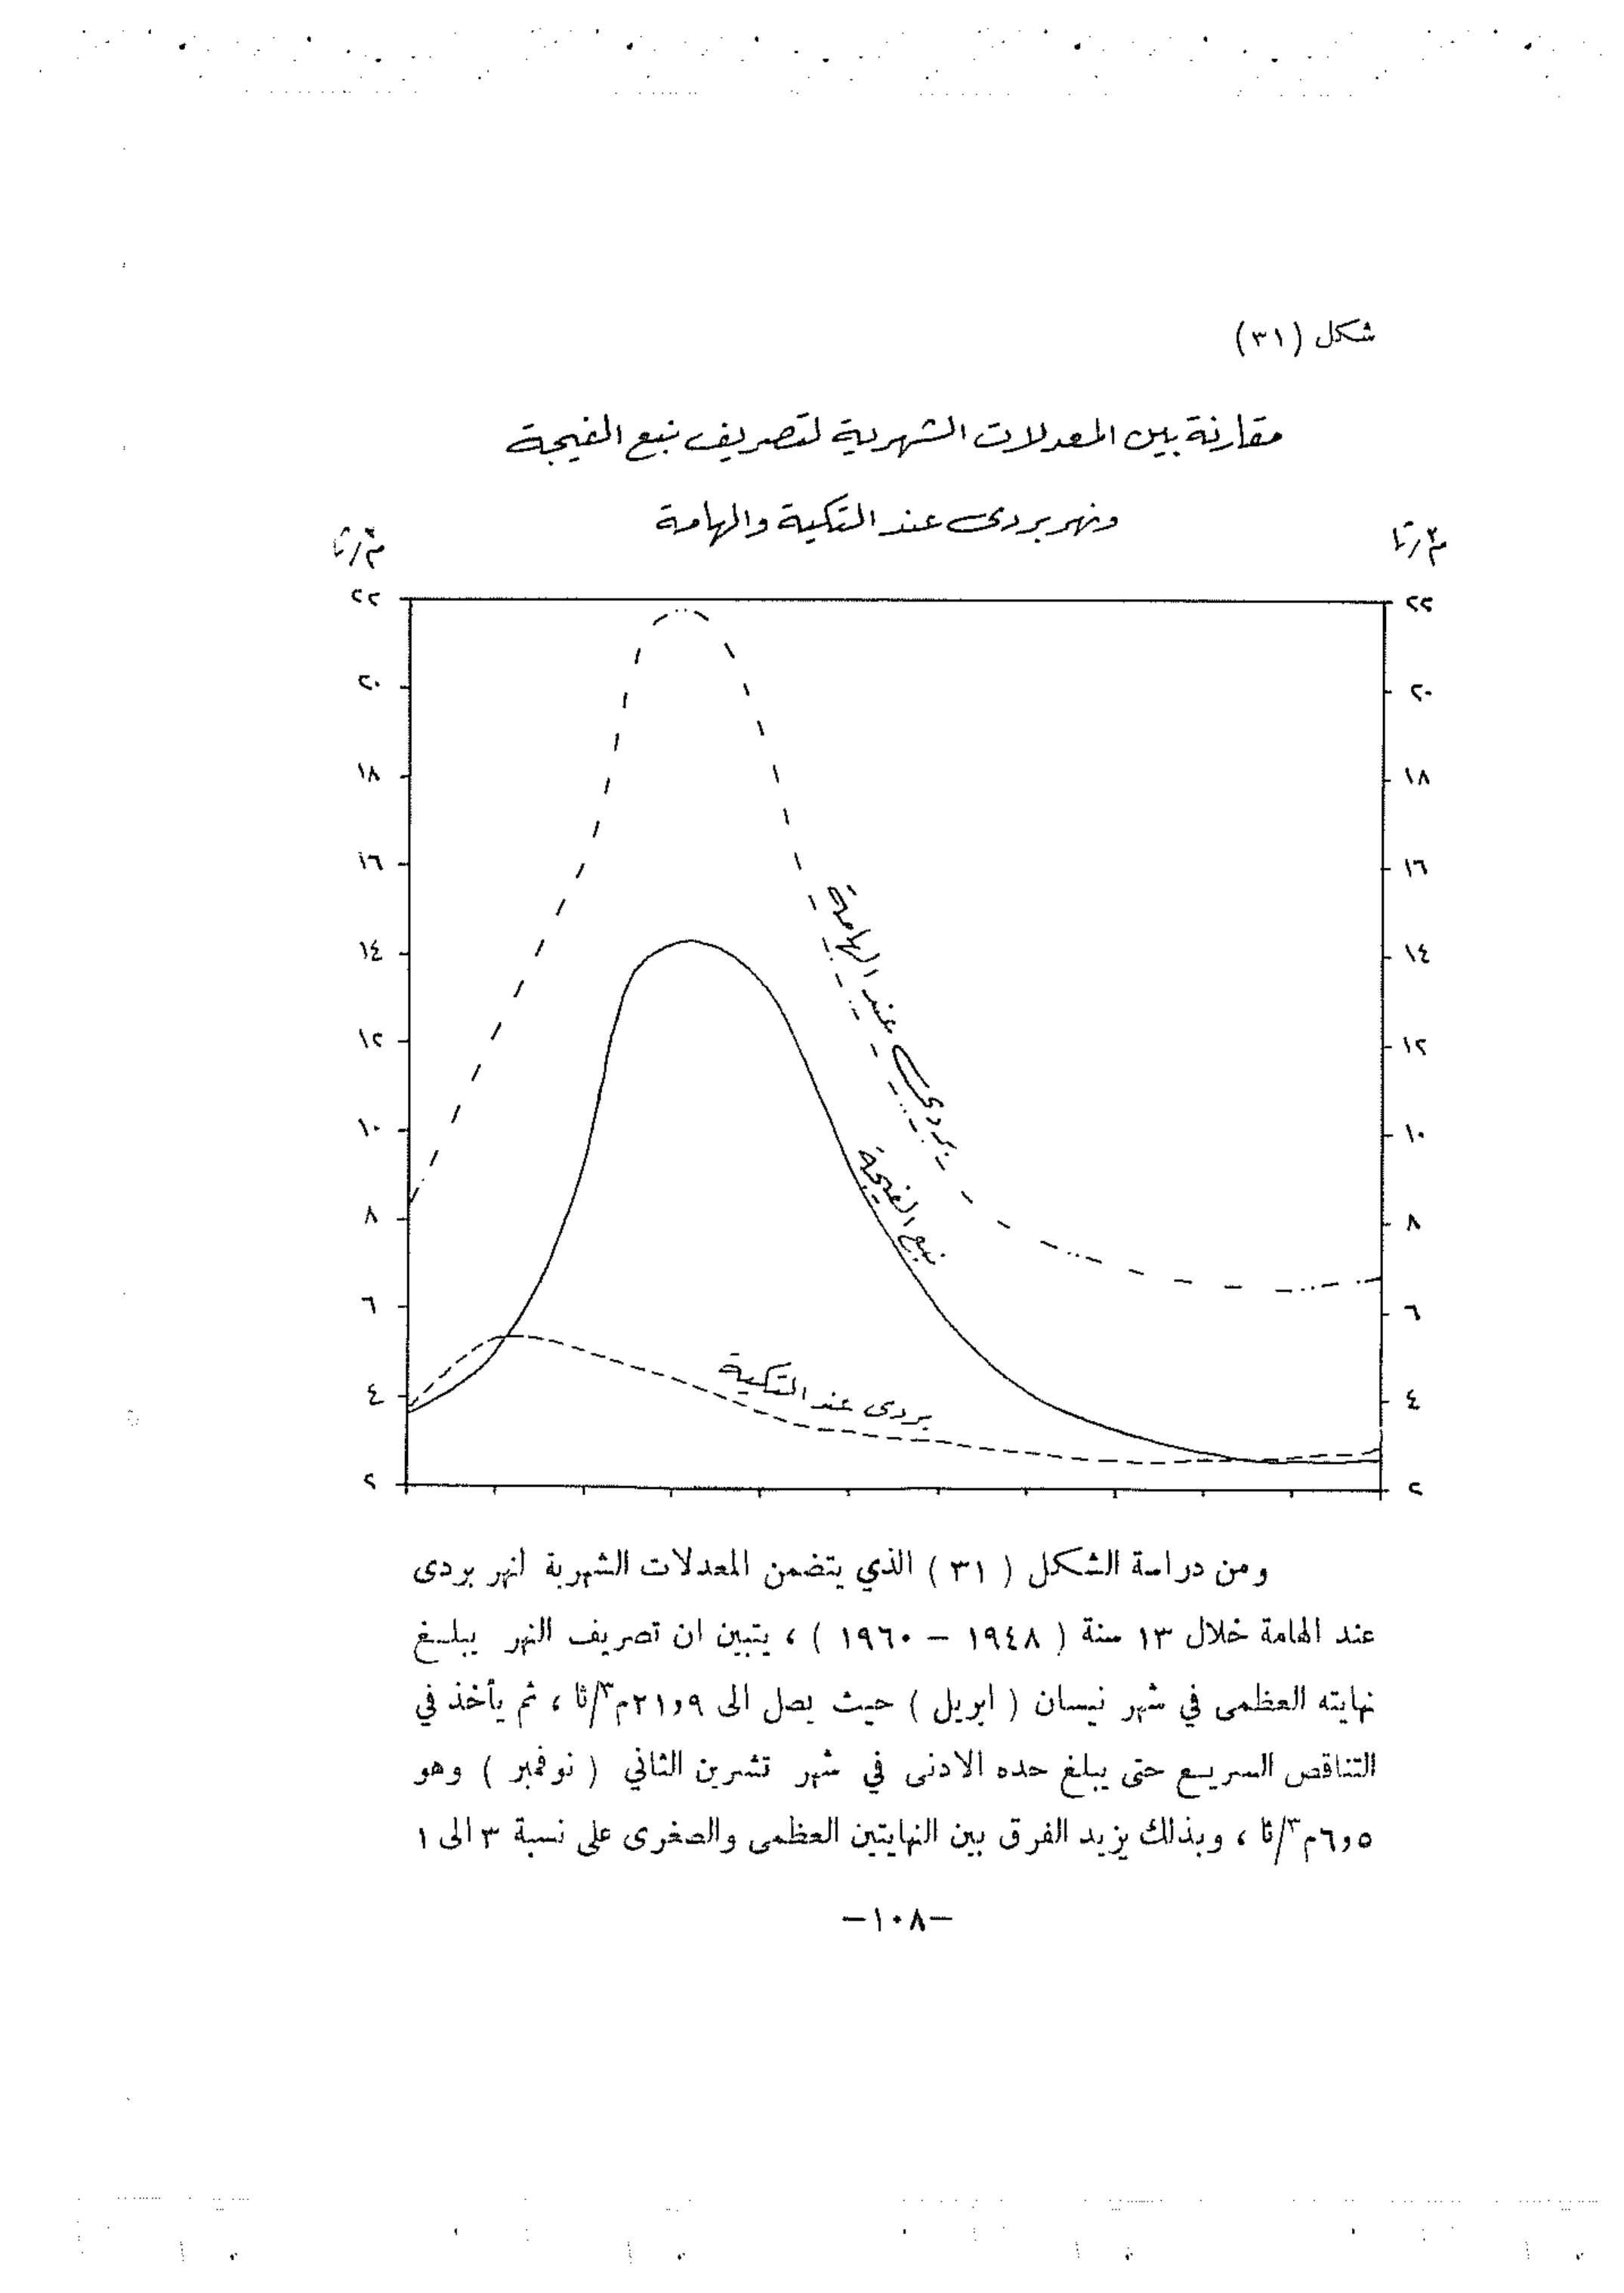 شكل (٣١)
مقارنة بين المعدلات الشهرية لتصريف نبع الفيجة
ونهر بردى عند التكية والهامة
م٣/ثا
م٣/ثا
٢٢
٢٢
٢٠
٢٠
١٨
١٨
١٦
١٦
١٤
١٤
١٢
١٢
١٠
١٠
٨
٨
٦
٦
٤
٤
٢
٢
بردى عند الهامة
نبع الفيجة
بردى عند التكية
ومن دراسة الشكل ( ٣١ ) الذي يتضمن المعدلات الشهرية لنهر بردى
عند الهامة خلال ١٣ سنة ( ١٩٤٨ – ١٩٦٠ ) ، يتبين ان تصريف النهر يبلغ
نهايته العظمى في شهر نيسان ( ابريل ) حيث يصل الى ٢١٫٩م٣/ثا ، ثم يأخذ في
التناقص السريع حتى يبلغ حده الادنى في شهر تشرين الثاني ( نوفمبر ) وهو
٦٫٥م٣/ثا ، وبذلك يزيد الفرق بين النهايتين العظمى والصغرى على نسبة ٣ الى ١
–١٠٨–